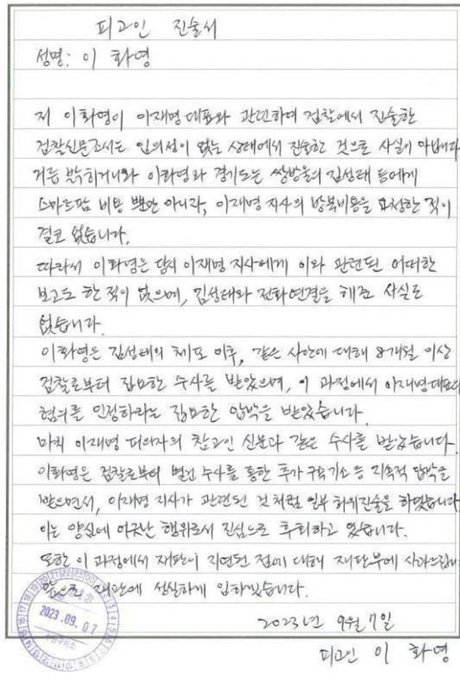 피고인 진술서
성명: 이 화영
저 이화영이 이재명 대표와 관련하여 검찰에서 진술한
검찰신문조서는 임의성이 없는 상태에서 진술한 것으로 사실이 아닙니다
거듭 밝히거니와 이화영과 경기도는 쌍방울의 김성태 등에게
스마트팜 비용 뿐만 아니라, 이재명 지사의 방북비용을 요청한 적이
결코 없습니다.
따라서 이화영은 당시 이재명 지사에게 이와 관련된 어떠한
보고도 한 적이 없으며, 김성태와 전화연결을 해준 사실도
없습니다.
이화영은 김성태의 체포 이후, 같은 사안에 대해 8개월 이상
검찰로부터 집요한 수사를 받았으며, 이 과정에서 이재명대표의
혐의를 인정하라는 집요한 압박을 받았습니다.
마치 이재명 피의자의 참고인 신분과 같은 수사를 받았습니다.
이화영은 검찰로부터 별건 수사를 통한 추가 구속기소 등 지속적 압박을
받으면서, 이재명 지사가 관련된 것처럼 일부 허위진술을 하였습니다
이는 양심에 어긋난 행위로서 진심으로 후회하고 있습니다.
또한 이 과정에서 재판이 지연된 점에 대해 재판부에 사과드립니다
앞으로 재판에 성실하게 임하겠습니다.
2023.09.07
2023년 9월 7일
피고인 이 화영